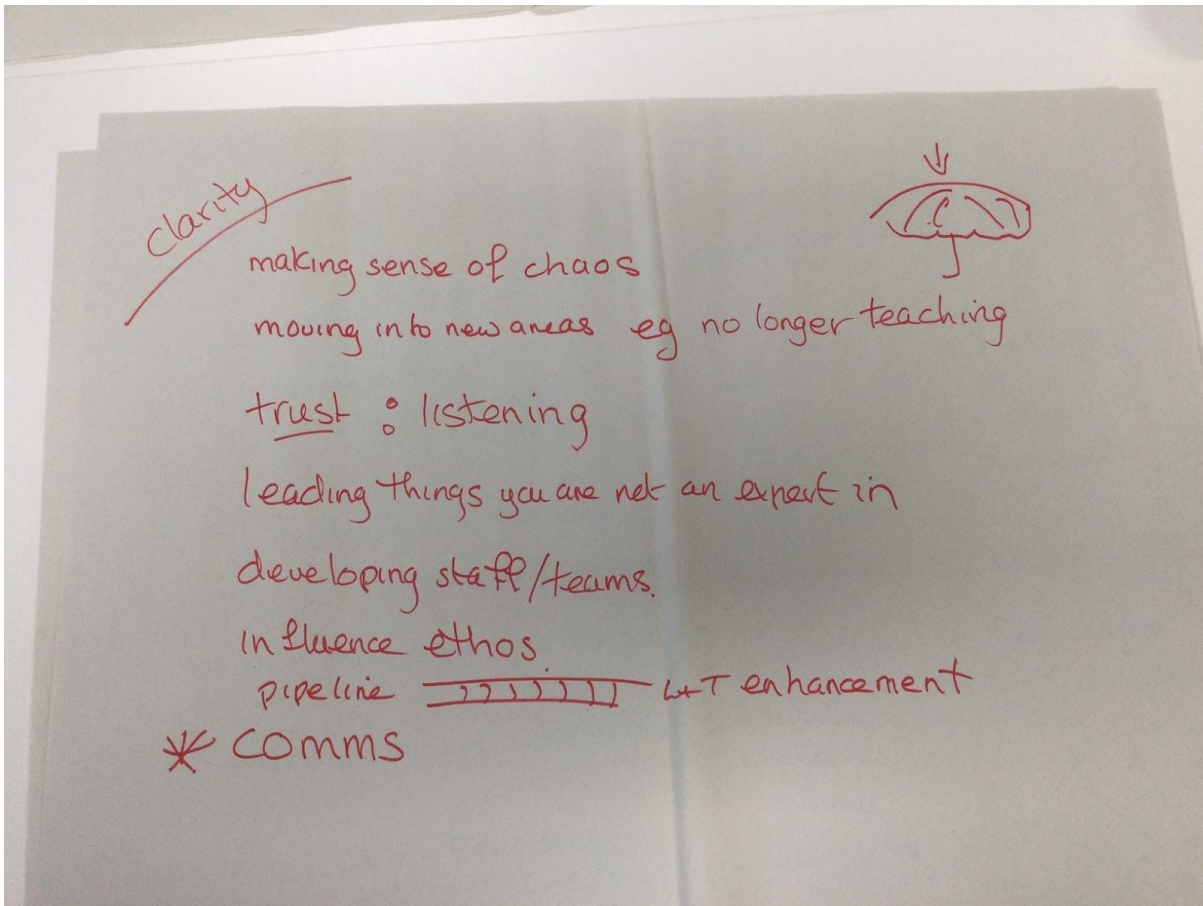 clarity
making sense of chaos
moving into new areas eg no longer teaching
trust : listening
leading things you are not an expert in
developing staff/teams.
influence ethos
pipeline L+T enhancement
* comms